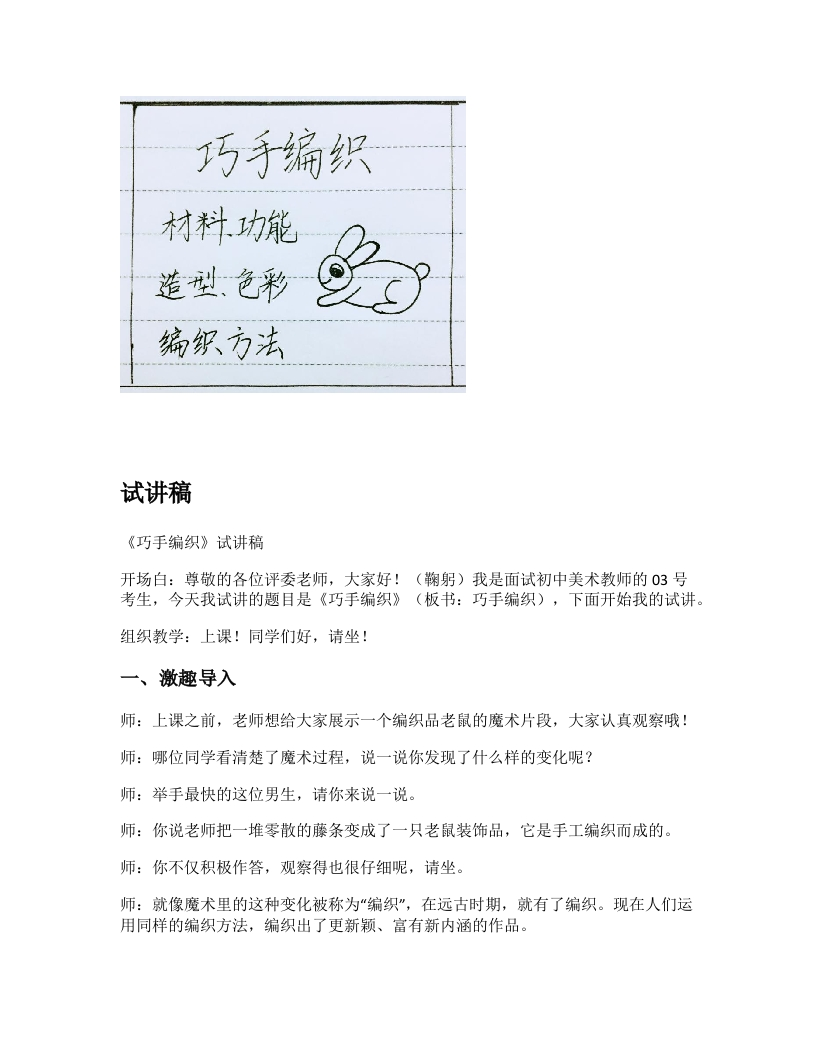 巧手编织
材料、功能
造型、色彩
编织方法
试讲稿
《巧手编织》试讲稿
开场白：尊敬的各位评委老师，大家好！（鞠躬）我是面试初中美术教师的 03 号
考生，今天我试讲的题目是《巧手编织》（板书：巧手编织），下面开始我的试讲。
组织教学：上课！同学们好，请坐！
一、激趣导入
师：上课之前，老师想给大家展示一个编织品老鼠的魔术片段，大家认真观察哦！
师：哪位同学看清楚了魔术过程，说一说你发现了什么样的变化呢？
师：举手最快的这位男生，请你来说一说。
师：你说老师把一堆零散的藤条变成了一只老鼠装饰品，它是手工编织而成的。
师：你不仅积极作答，观察得也很仔细呢，请坐。
师：就像魔术里的这种变化被称为“编织”，在远古时期，就有了编织。现在人们运
用同样的编织方法，编织出了更新颖、富有新内涵的作品。